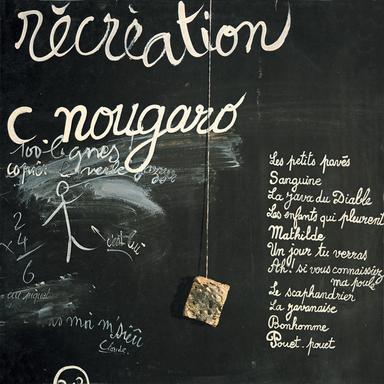 récréation
c nougaro
100 lignes!
copié
Les petits pavés
Sanguine
La java du Diable
Les enfants qui pleurent
Mathilde
Un jour tu verras
Ah! si vous connaissiez
ma poule
Le scaphandrier
La javanaise
Bonhomme
Pouet-pouet
2
x 4
6
c'est lui
au piquet
as moi m'sieu
Claude.